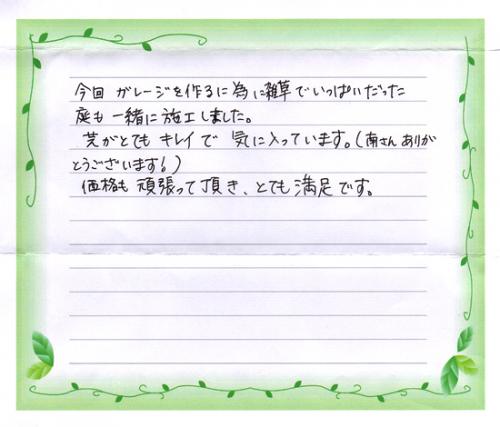 今回 ガレージを作るに為に雑草でいっぱいだった
庭も一緒に施工しました。
芝がとても キレイで 気に入っています。(南さん ありが
とうございます!)
価格も 頑張って頂き、とても 満足です。